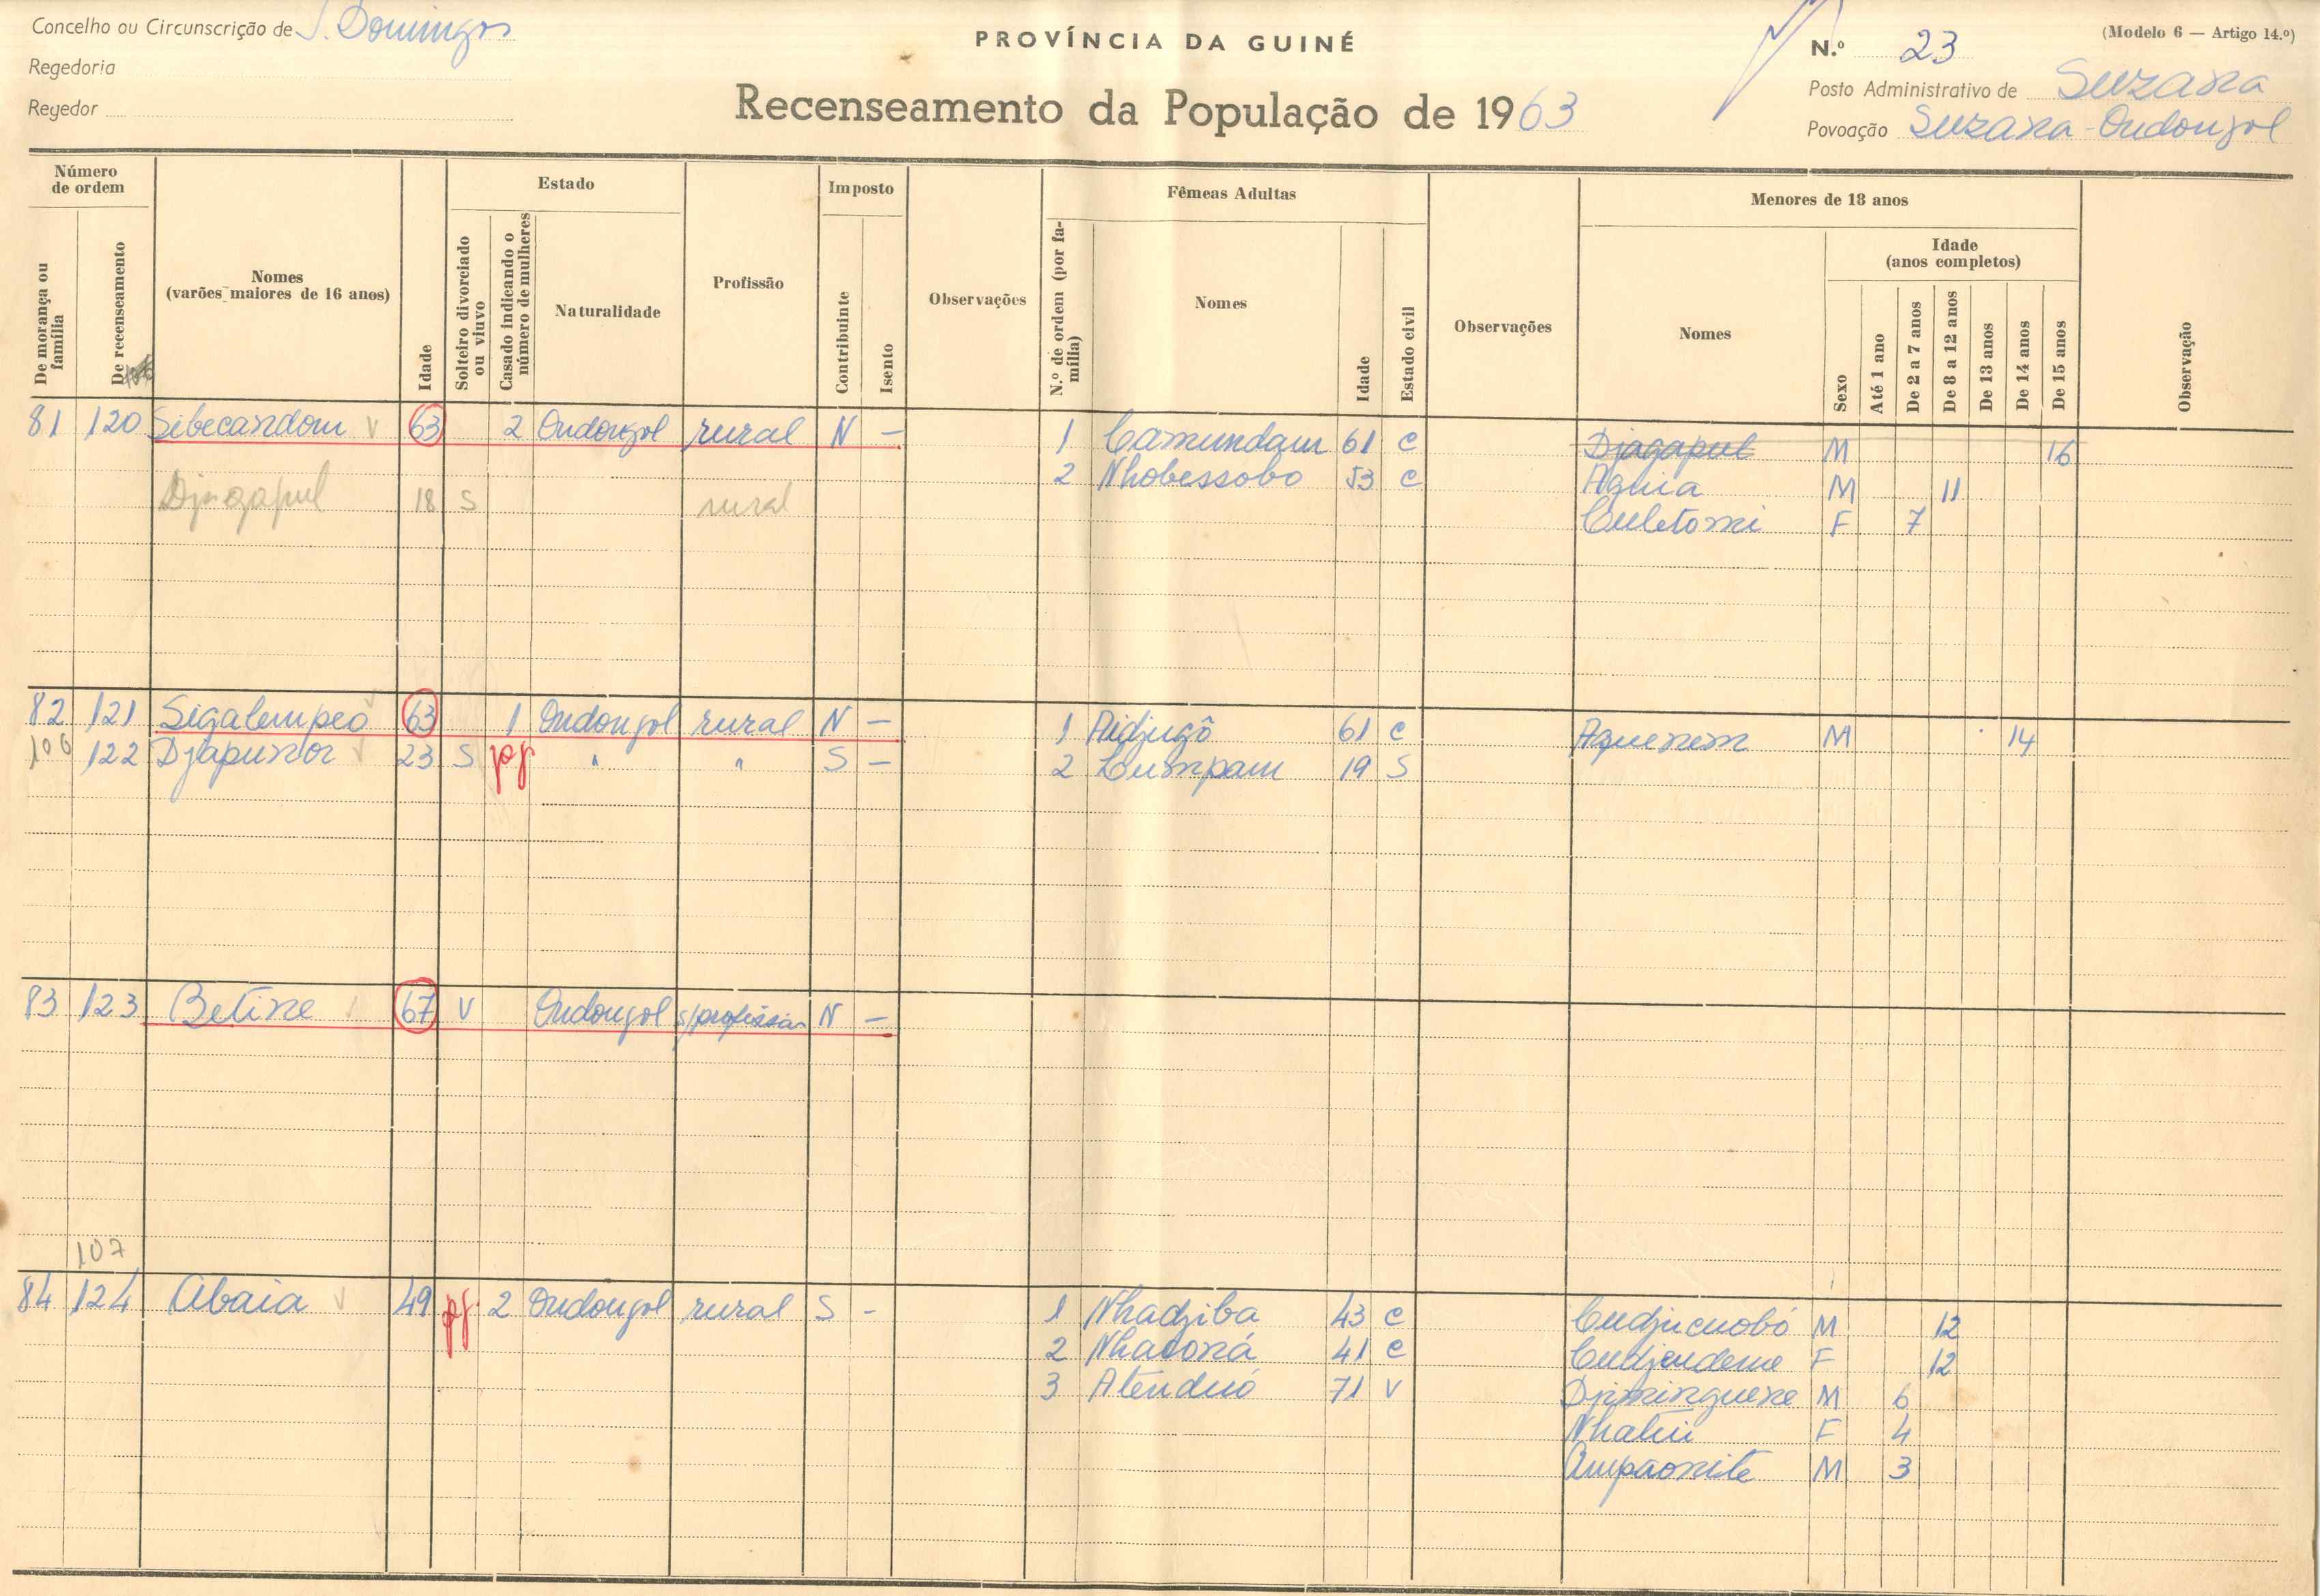 Concelho ou Circunscrição de S. Domingos
PROVÍNCIA DA GUINÉ
N.º 23
(Modelo 6 — Artigo 14.º)
Regedoria
Posto Administrativo de Suzana
Regedor
Recenseamento da População de 1963
Povoação Suzana-Ondongol
Número de ordem
De morança ou família
De recenseamento
Nomes
(varões maiores de 16 anos)
Idade
Estado
Solteiro divorciado ou viuvo
Casado indicando o número de mulheres
Naturalidade
Profissão
Imposto
Contribuinte
Isento
Observações
Fêmeas Adultas
N.º de ordem (por família)
Nomes
Idade
Estado civil
Observações
Menores de 18 anos
Nomes
Sexo
Idade
(anos completos)
Até 1 ano
De 2 a 7 anos
De 8 a 12 anos
De 13 anos
De 14 anos
De 15 anos
Observação
81 120 Sibecandom 63 2 Ondongol rural N — 1 Camundam 61 C Djagapul M 16
2 Nhobessobo 53 C Aguia M 11
Djagapul 18 S rural
Culetomi F 7
82 121 Sigalempeo 63 1 Ondongol rural N — 1 Aidjugô 61 C Aquenem M 14
106 122 Djapunor 23 S pg. " " S — 2 Cumpam 19 S
83 123 Betine 67 V Ondongol s/profissão N —
107
84 124 Abaia 49 pg. 2 Ondongol rural S - 1 Nhadjiba 43 C Cudjucuobó M 12
2 Nhaconá 41 C Cudjendeme F 12
3 Atenduó 71 V Djiminguene M 6
Nhalui F 4
Ampaonite M 3